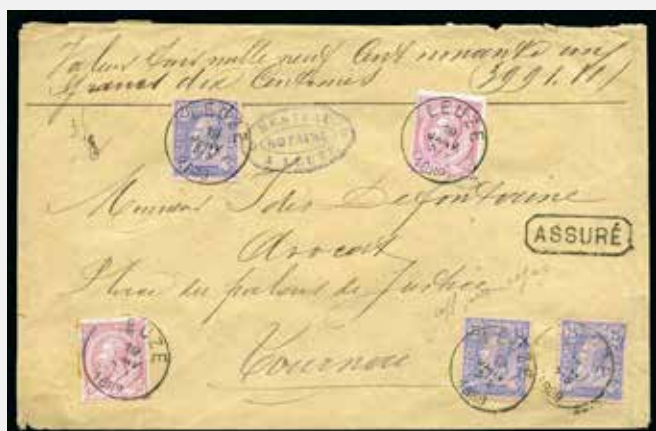 Valeur trois mille neuf Cent nonante un
francs dix Centimes (3991.10)
LEUZE
NOTAIRE
A LEUZE
LEUZE
Monsieur Jules Defontaine
Avocat
ASSURÉ
Place du palais de Justice
Tournai
LEUZE
LEUZE
LEUZE